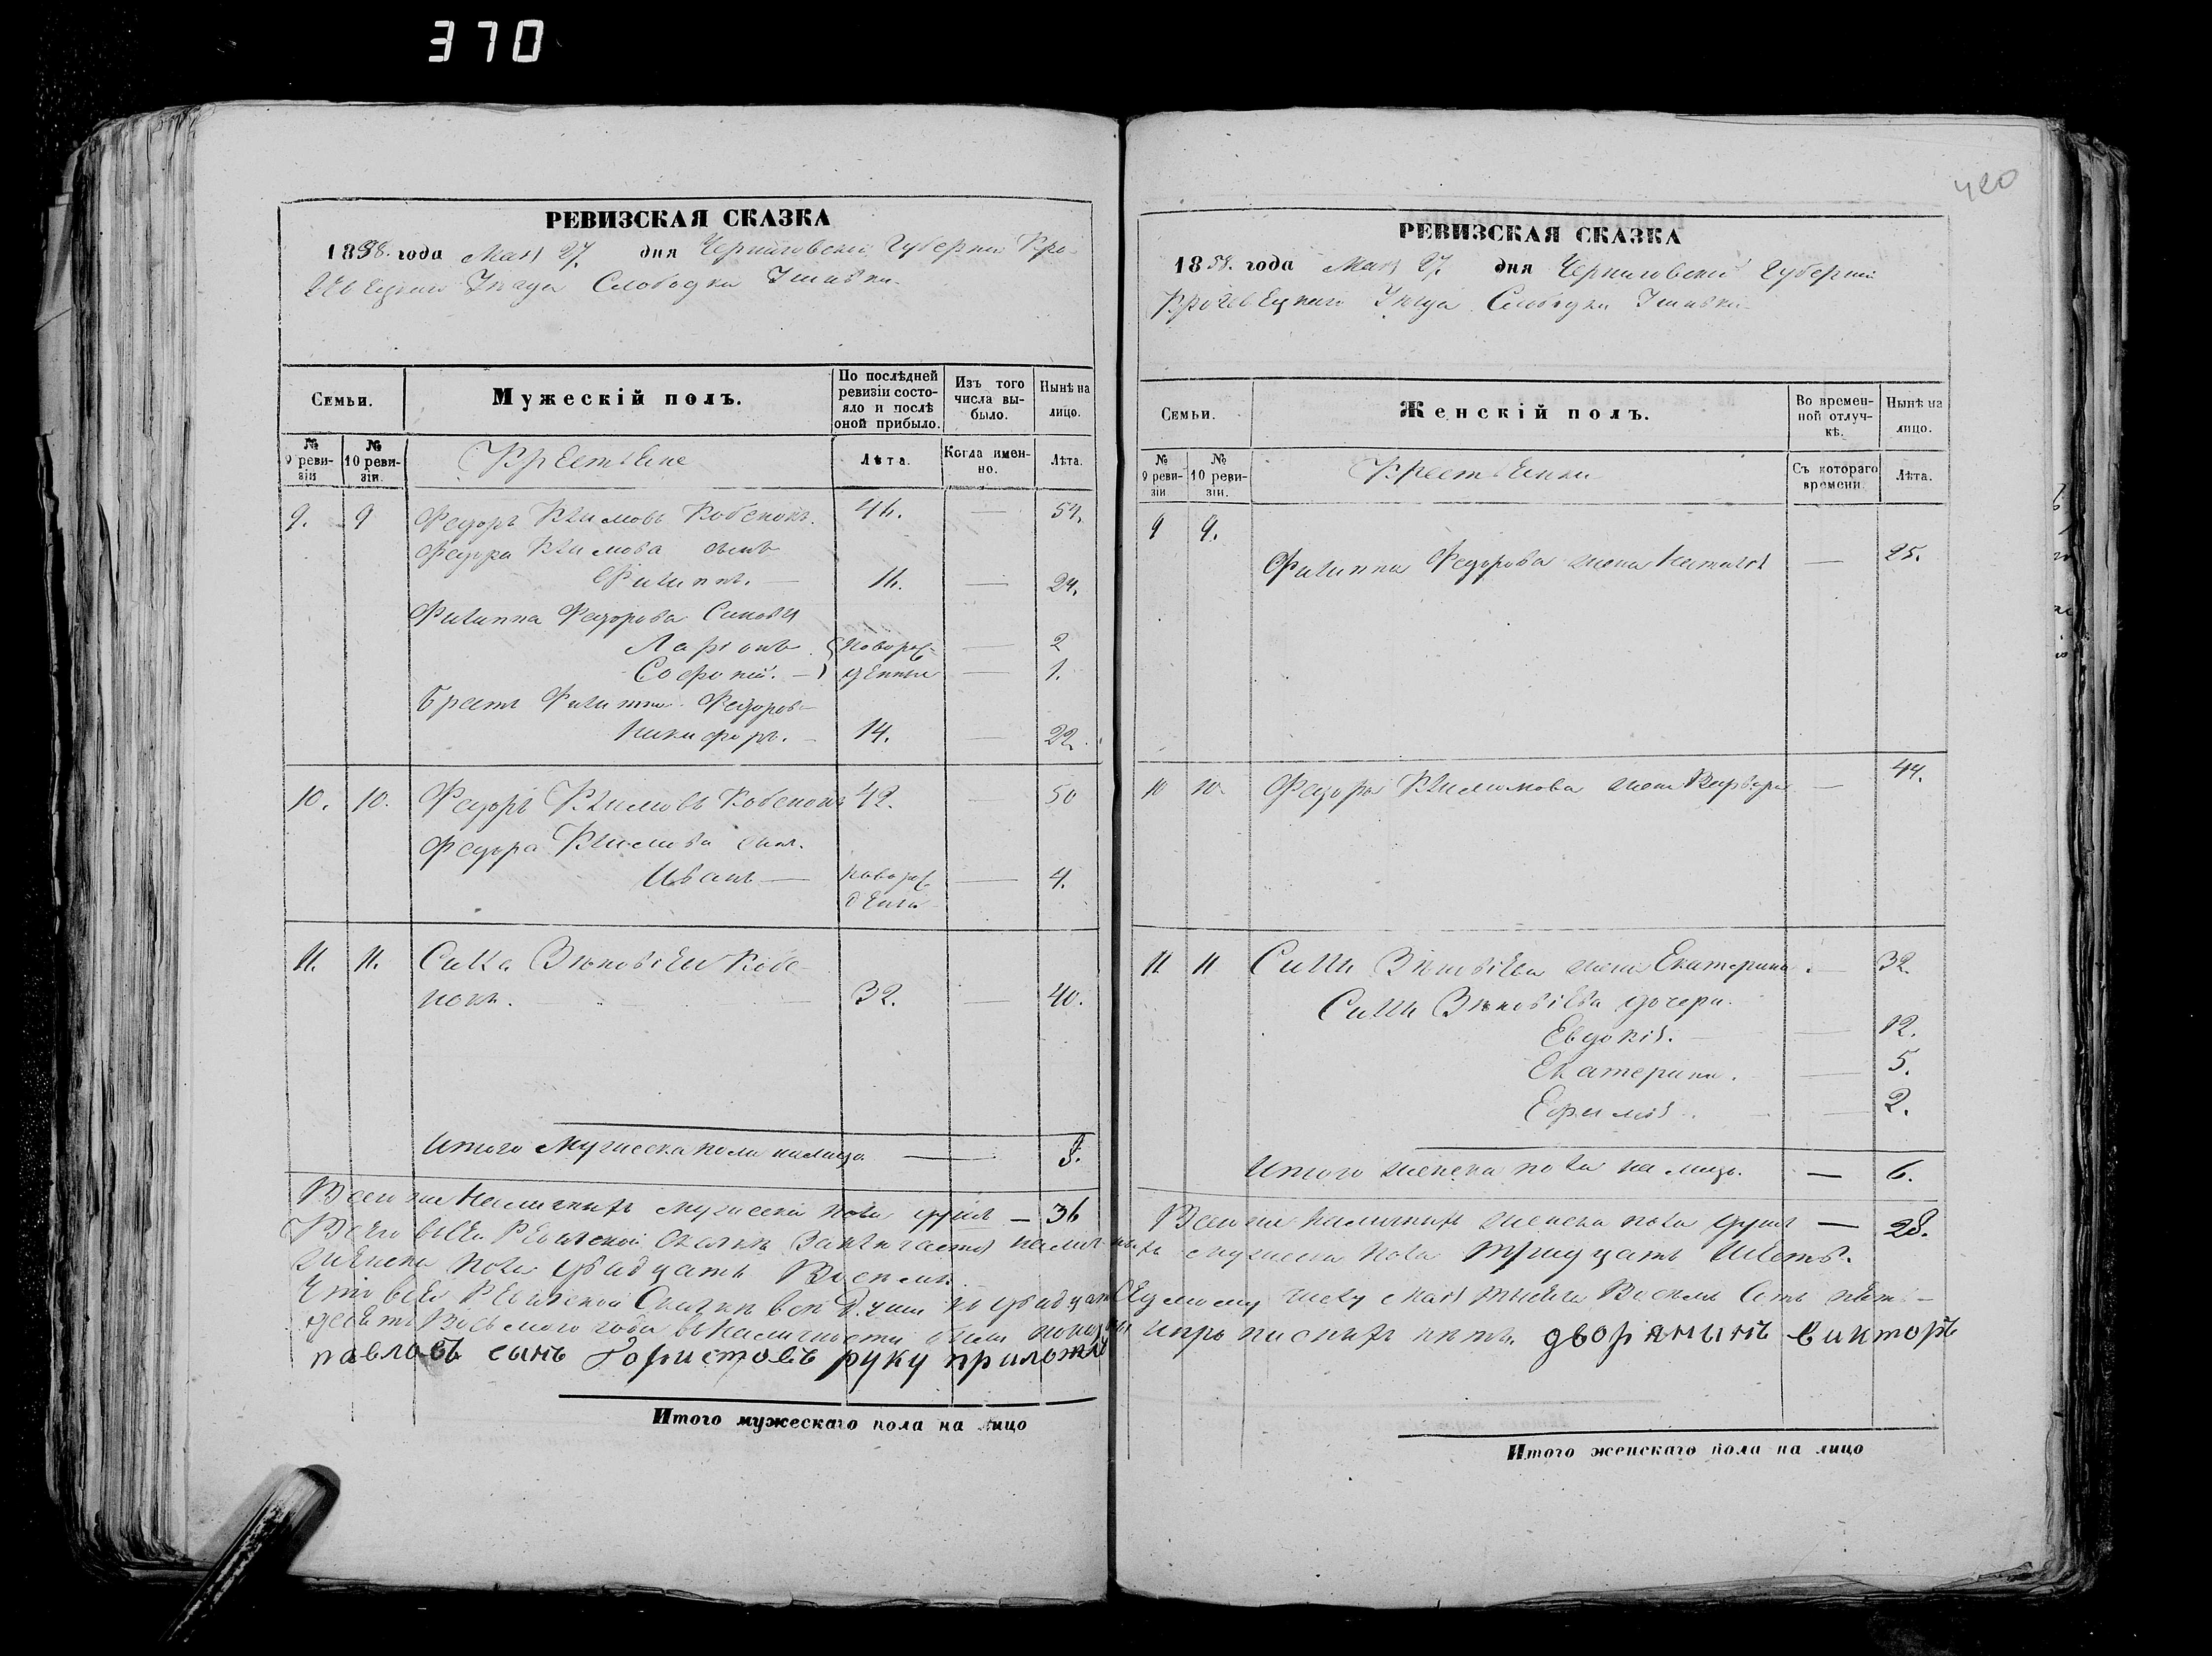 370
420
РЕВИЗСКАЯ СКАЗКА
1858. года Мая 27. дня Черниговской Губернии Кро-
левецкаго Уезда Слободки
Семьи.
Мужескій полъ.
По послѣдней ревизіи состояло и послѣ оной прибыло.
Изъ того числа выбыло.
Нынѣ на лицо.
№ 9 ревизіи
№ 10 ревизіи.
Крестьяне
Лѣта.
Когда именно.
Лѣта.
9. 9 Федоръ Климовъ Кобенокъ. 46. — 54.
Федора Климова сынъ
Филиппъ. — 16. — 24.
Филиппа Федорова Сыновья
Ларіонъ новорож- — 2
Софроній. — денные — 1.
Братъ Филиппа Федорова
Никифоръ. — 14. — 22.
10. 10. Федоръ Климовъ Кобенокъ 42. — 50
Федора Климова сынъ.
Иванъ — новорож- — 4.
денный
11. 11. Силла Зѣновіевъ Кобе-
нокъ. — 32. — 40.
Итого Мужеска пола налицо — 8.
Всего наличныхъ мужеска пола душъ — 36
РЕВИЗСКАЯ СКАЗКА
1858. года Мая 27. дня Черниговской Губерніи
Кролевецкаго Уезда Слободки
Семьи.
Женскій полъ.
Во временной отлучкѣ.
Нынѣ на лицо.
№ 9 ревизіи
№ 10 ревизіи.
Крестьянки
Съ котораго времени.
Лѣта.
9 9.
Филиппа Федорова жена Наталія — 25.
10 10. Федора Климова жена Варвара — 44.
11 11 Силлы Зѣновіева жена Екатерина. — 32.
Силлы Зѣновіева дочери.
Евдокія. — 12.
Екатерина. — 5.
Ефимія. — 2.
Итого женска пола на лицо. — 6.
Всего наличныхъ женска пола душъ — 28.
Всего въ сей Ревизской Сказкѣ Заключается наличныхъ мужеска пола тридцать Шесть.
женска пола двадцать Восемь.
Что въ сей Ревизской Сказкѣ все Души къ двадцать Седьмому числу Мая тысяча Восемь Сотъ пять-
десять Восьмого года въ наличности показаны и прописныхъ нѣтъ. дворянинъ викторъ
павловъ сынъ руку приложилъ
Итого мужескаго пола на лицо
Итого женскаго пола на лицо